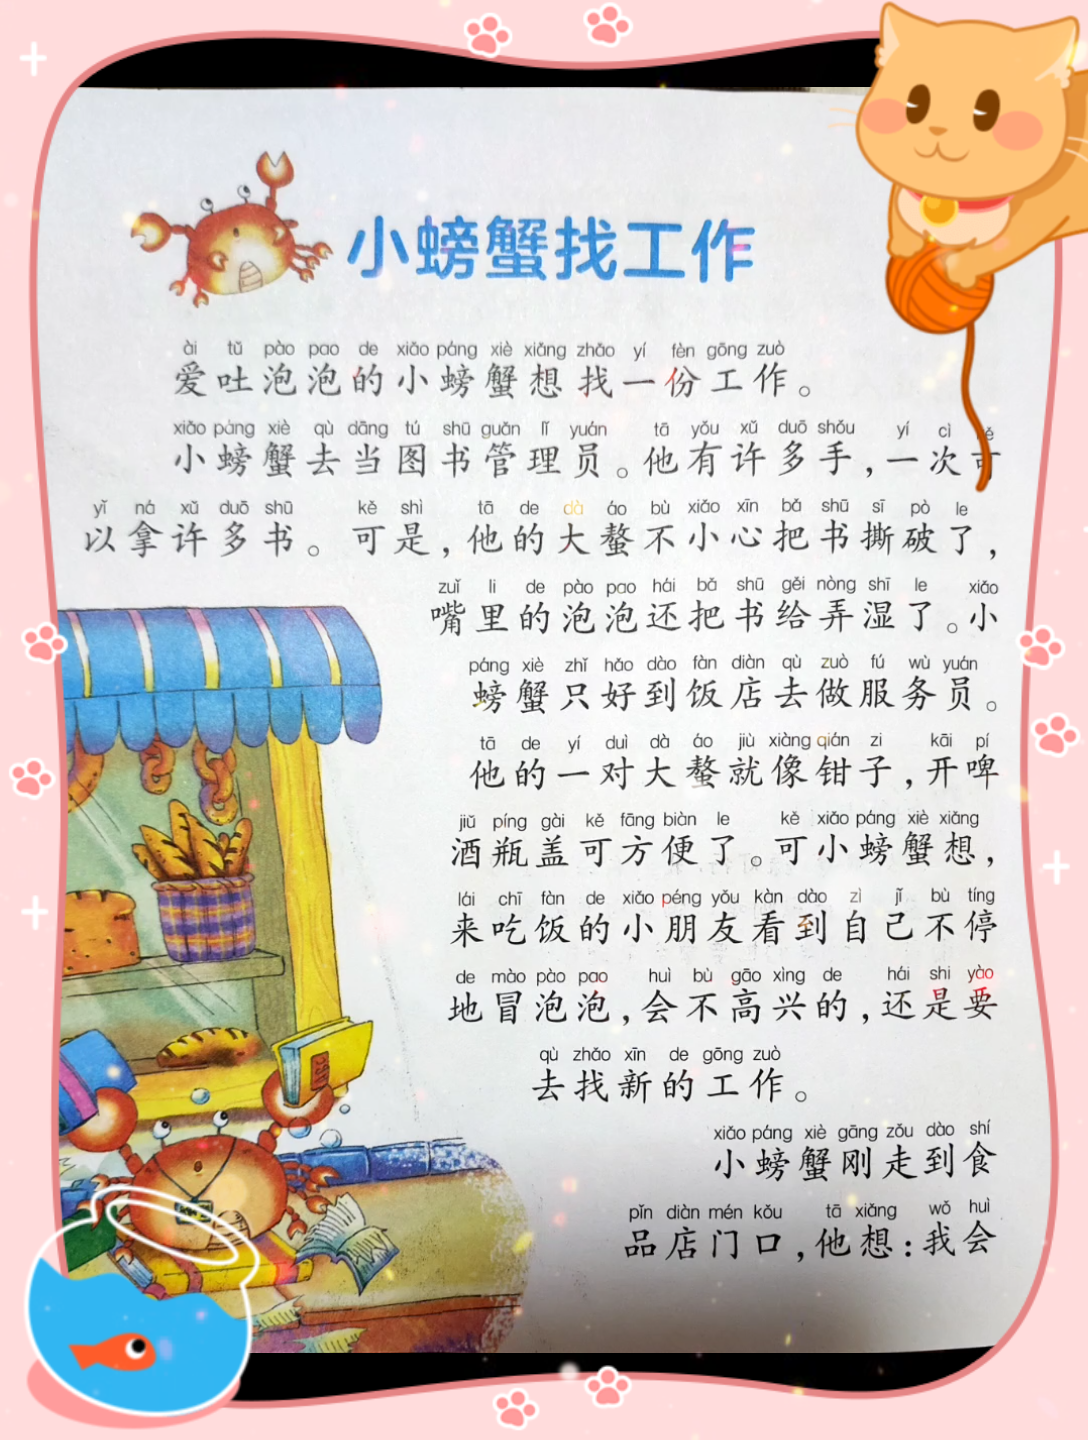 小螃蟹找工作
ài tǔ pào pao de xiǎo páng xiè xiǎng zhǎo yí fèn gōng zuò
爱吐泡泡的小螃蟹想找一份工作。
xiǎo páng xiè qù dāng tú shū guǎn lǐ yuán tā yǒu xǔ duō shǒu yí cì kě
小螃蟹去当图书管理员。他有许多手，一次可
yǐ ná xǔ duō shū kě shì tā de dà áo bù xiǎo xīn bǎ shū sī pò le
以拿许多书。可是，他的大螯不小心把书撕破了，
zuǐ li de pào pao hái bǎ shū gěi nòng shī le xiǎo
嘴里的泡泡还把书给弄湿了。小
páng xiè zhǐ hǎo dào fàn diàn qù zuò fú wù yuán
螃蟹只好到饭店去做服务员。
tā de yí duì dà áo jiù xiàng qián zi kāi pí
他的一对大螯就像钳子，开啤
jiǔ píng gài kě fāng biàn le kě xiǎo páng xiè xiǎng
酒瓶盖可方便了。可小螃蟹想，
lái chī fàn de xiǎo péng yǒu kàn dào zì jǐ bù tíng
来吃饭的小朋友看到自己不停
de mào pào pao huì bù gāo xìng de hái shi yào
地冒泡泡，会不高兴的，还是要
qù zhǎo xīn de gōng zuò
去找新的工作。
xiǎo páng xiè gāng zǒu dào shí
小螃蟹刚走到食
pǐn diàn mén kǒu tā xiǎng wǒ huì
品店门口，他想：我会